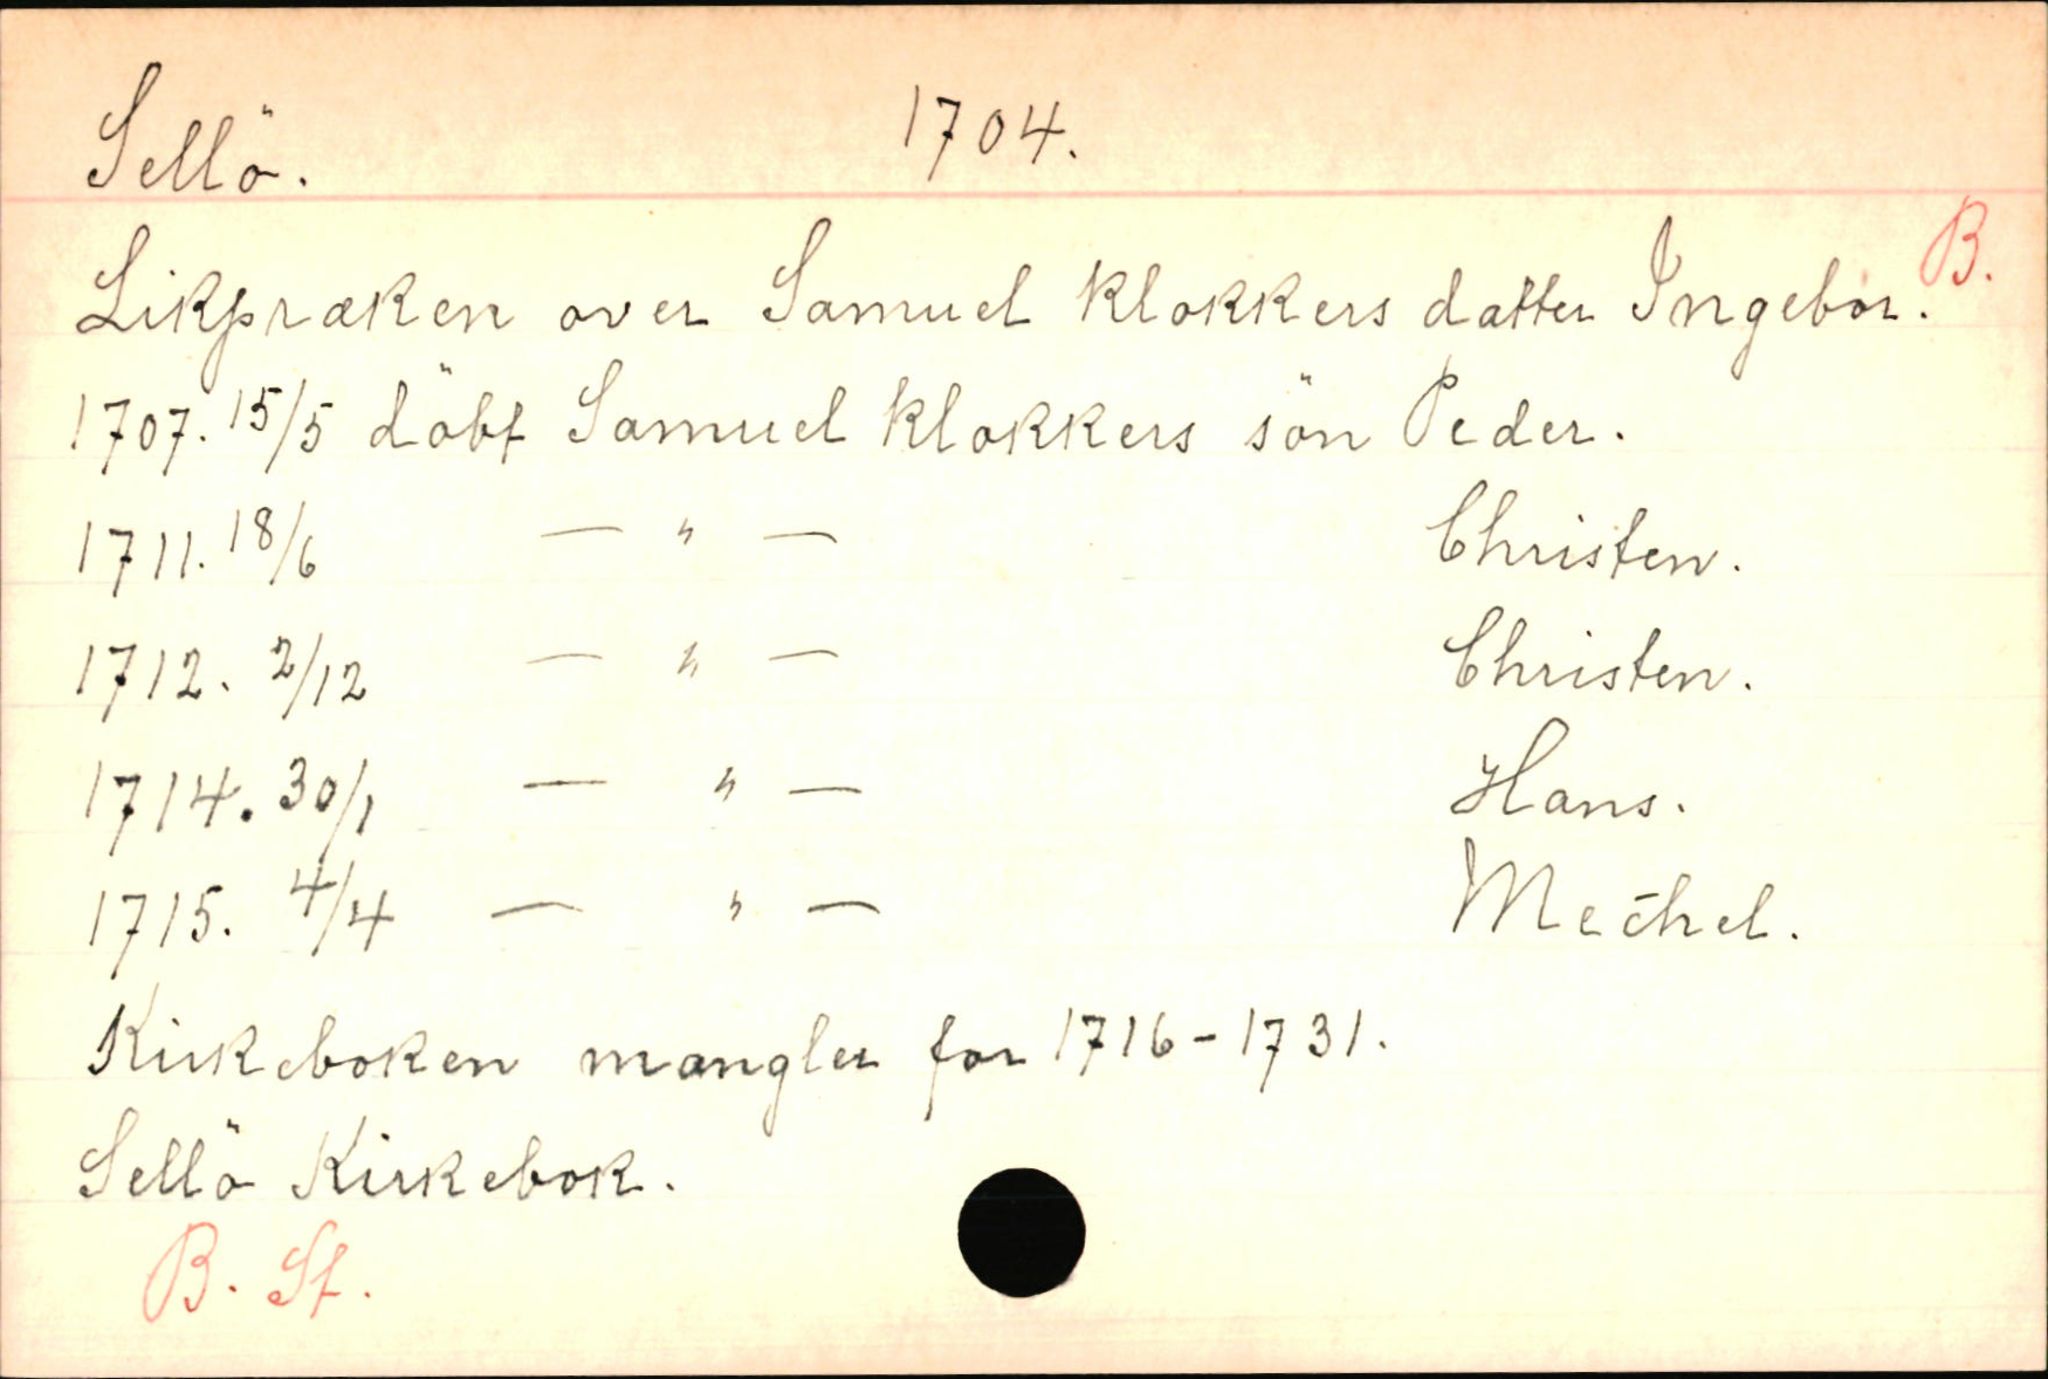 Sellö. 1704.
B.
Likpræken over Samuel klokkers datter Ingebor.
1707. 15/5 döbt Samuel klokkers sön Peder.
1711. 18/6 — " — Christen.
1712. 2/12 — " — Christen.
1714. 30/1 — " — Hans.
1715. 4/4 — " — Mechel.
Kirkeboken mangler for 1716-1731.
Sellö Kirkebok.
B. St.